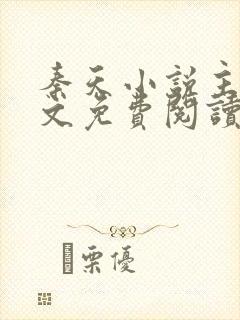 秦天小說主
文免費閱讀
栗優